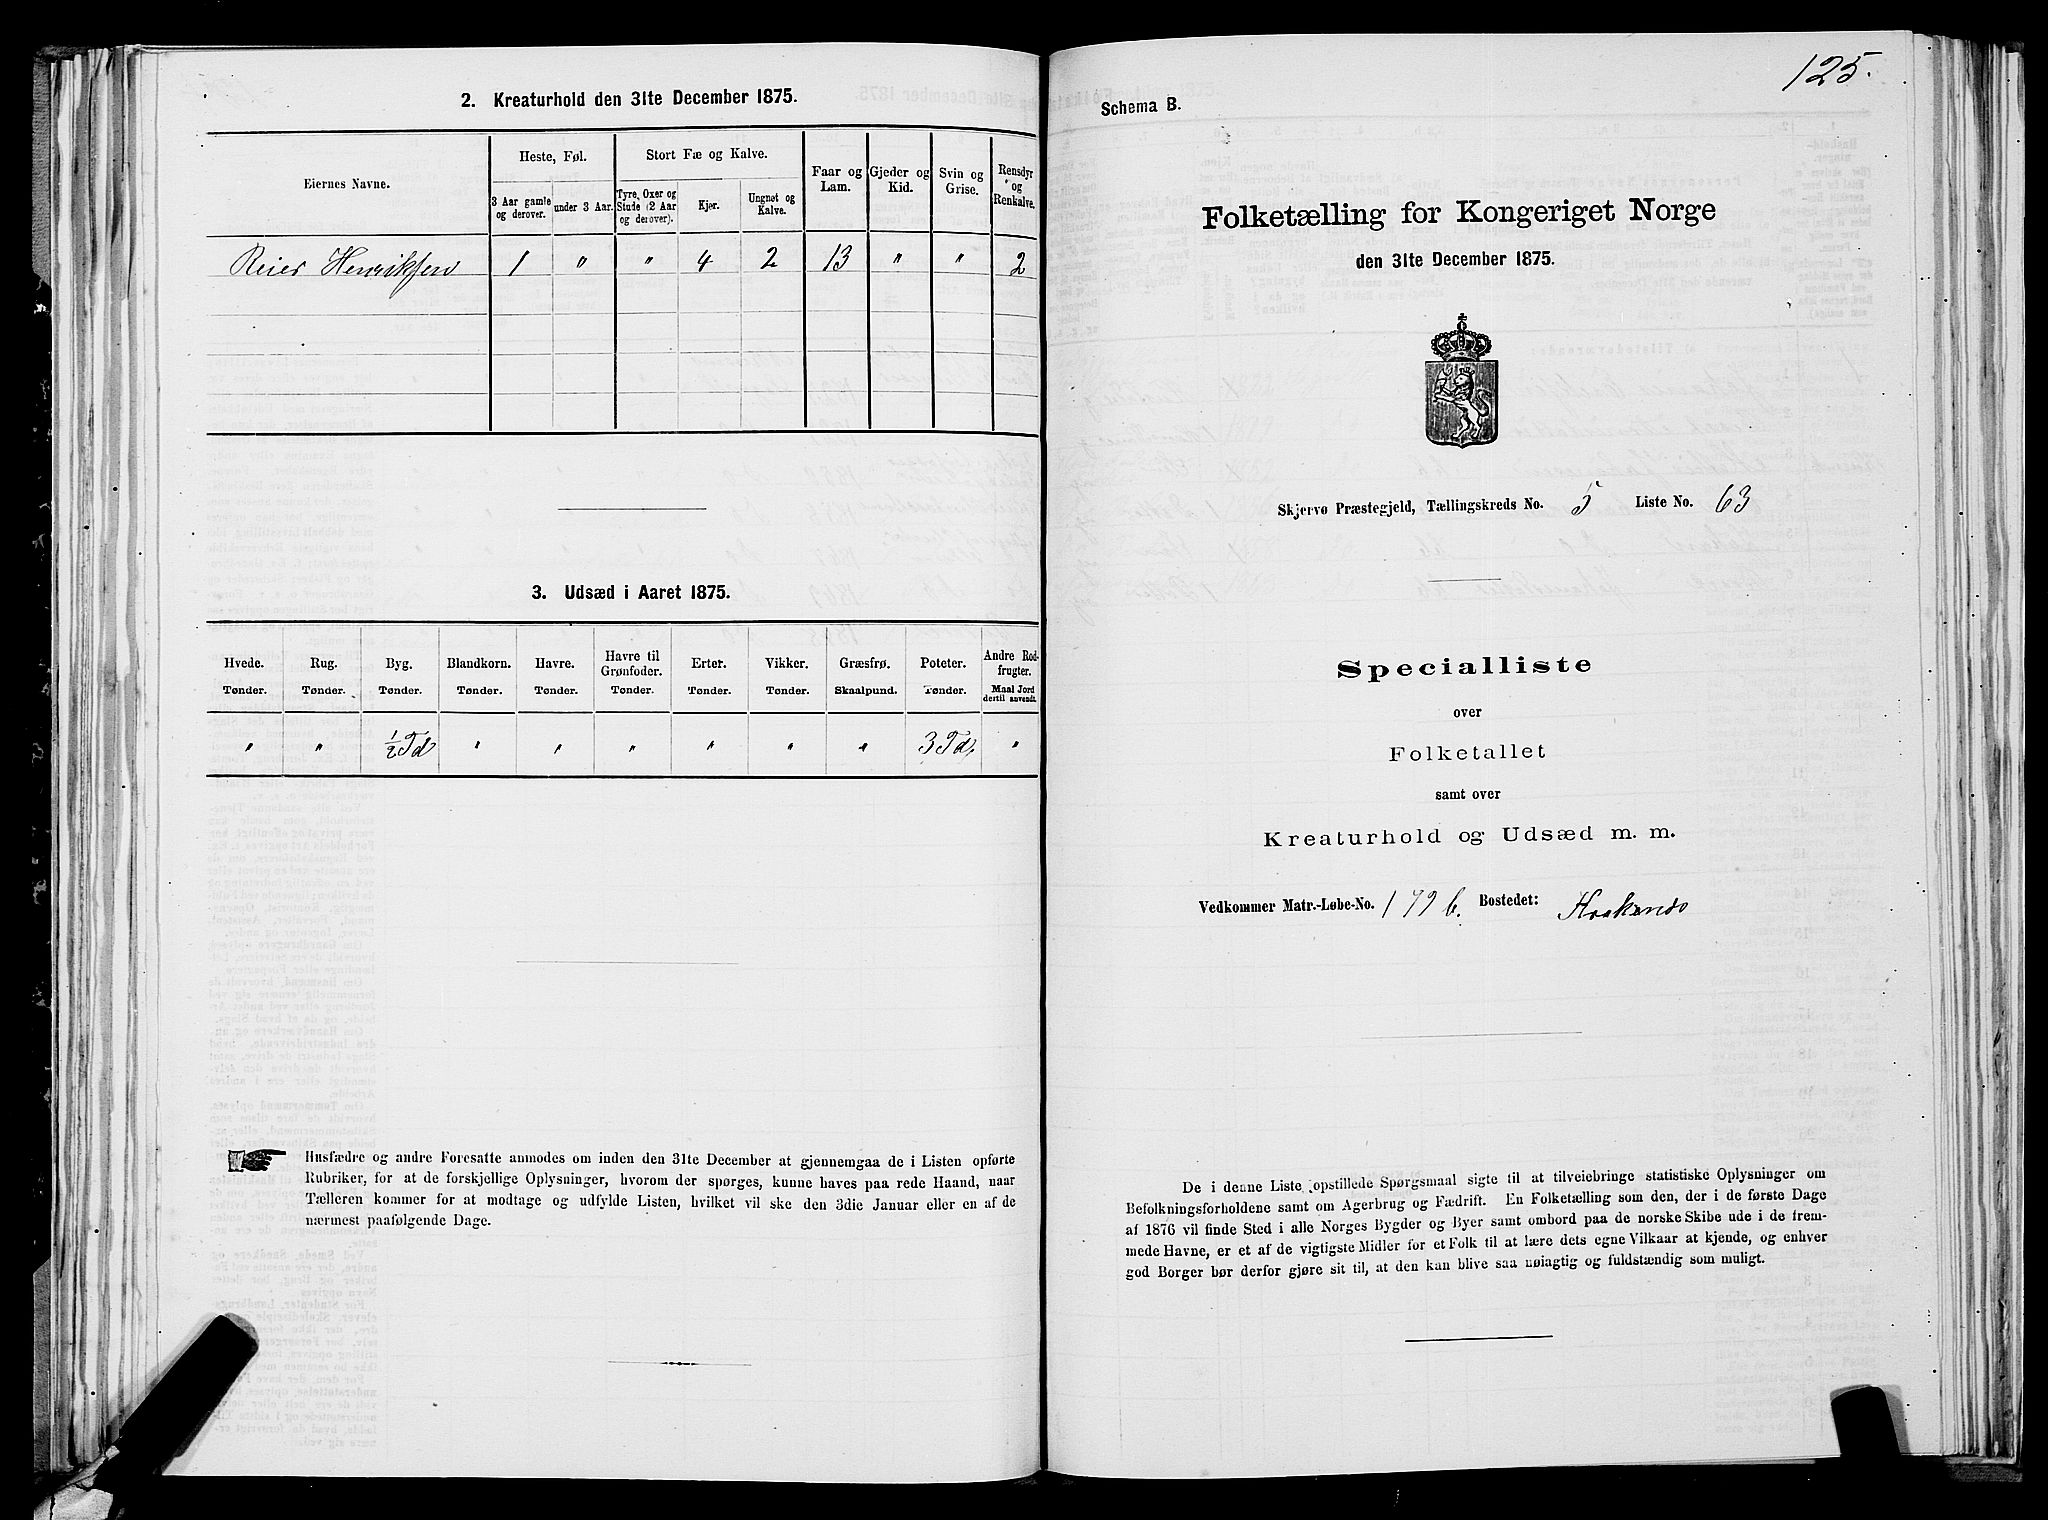 2. Kreaturhold den 31te December 1875.
Eiernes Navne.
Heste, Føl.
Stort Fæ og Kalve.
Faar og Lam.
Gjeder og Kid.
Svin og Grise.
Rensdyr og Renkalve.
3 Aar gamle og derover.
under 3 Aar.
Tyre, Oxer og Stude (2 Aar og derover).
Kjer.
Ungnøt og Kalve.
Reier Henriksen 1 " " 4 2 13 " " 2
3. Udsæd i Aaret 1875.
Hvede. Rug. Byg. Blandkorn. Havre. Havre til Grønfoder. Erter. Vikker. Græsfrø. Poteter. Andre Rodfrugter.
Tønder. Tønder. Tønder. Tønder. Tønder. Tønder. Tønder. Tønder. Skaalpund. Tønder. Maal Jord dertil anvendt.
" " ½ Td " " " " " " 3 Td. "
Husfædre og andre Foresatte anmodes om inden den 31te December at gjennemgaa de i Listen opførte
Rubriker, for at de forskjellige Oplysninger, hvorom der spørges, kunne haves paa rede Haand, naar
Tælleren kommer for at modtage og udfylde Listen, hvilket vil ske den 3die Januar eller en af de
nærmest paafølgende Dage.
125.
Schema B.
Folketælling for Kongeriget Norge
den 31te December 1875.
Skjervø Præstegjeld, Tællingskreds No. 5 Liste No. 63
Specialliste
over
Folketallet
samt over
Kreaturhold og Udsæd m. m.
Vedkommer Matr.-Løbe-No. 179 b. Bostedet:
De i denne Liste opstillede Spørgsmaal sigte til at tilveiebringe statistiske Oplysninger om
Befolkningsforholdene samt om Agerbrug og Fædrift. En Folketælling som den, der i de første Dage
af 1876 vil finde Sted i alle Norges Bygder og Byer samt ombord paa de norske Skibe ude i de frem-
mede Havne, er et af de vigtigste Midler for et Folk til at lære dets egne Vilkaar at kjende, og enhver
god Borger bør derfor gjøre sit til, at den kan blive saa nøiagtig og fuldstændig som muligt.